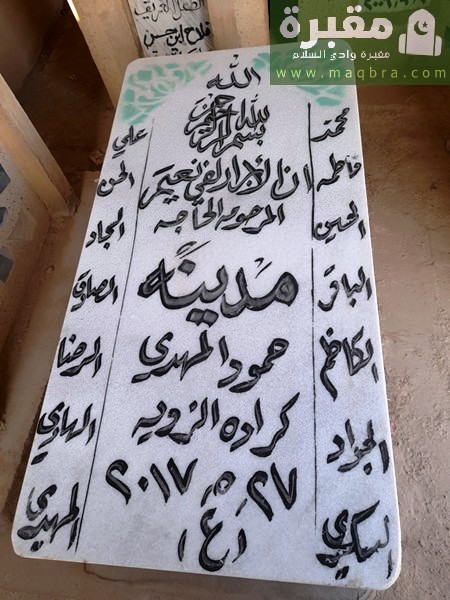 مقبرة
مقبرة وادي السلام
www.maqbra.com
فلاح
حسن
الله
بسم الله الرحمن الرحيم
ان الأبرار لفي نعيم
المرحومه الحاجه
مدينه
حمود المهدي
كراده الزويه
٢٧ ٥ ٢٠١٧
(ع١)
محمد
فاطمه
الحسين
الباقر
الكاظم
الجواد
العسكري
علي
الحسن
السجاد
الصادق
الرضا
الهادي
المهدي